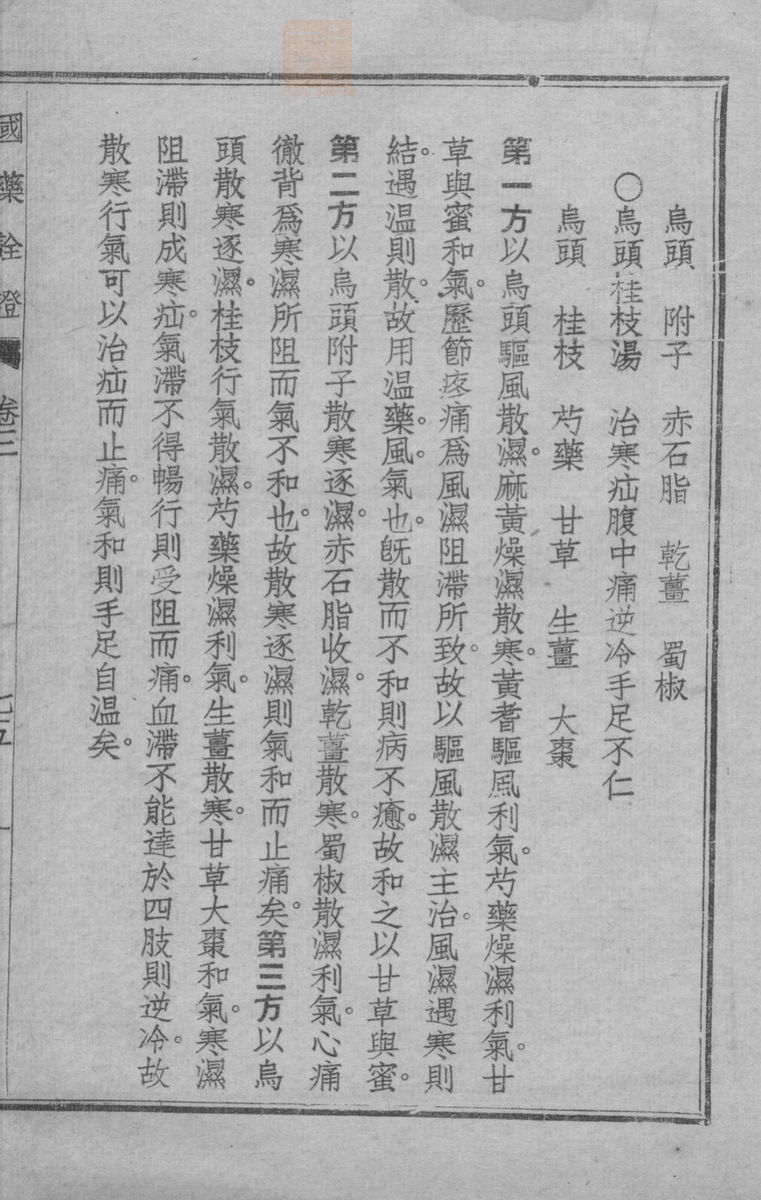 烏頭　附子　赤石脂　乾薑　蜀椒
○烏頭桂枝湯　治寒疝腹中痛逆冷手足不仁
烏頭　桂枝　芍藥　甘草　生薑　大棗
第一方以烏頭驅風散濕。麻黃燥濕散寒。黃耆驅風利氣。芍藥燥濕利氣。甘
草與蜜和氣。歷節疼痛爲風濕阻滯所致。故以驅風散濕主治。風濕遇寒則
結。遇温則散。故用温藥。風。氣也。旣散而不和則病不癒。故和之以甘草與蜜。
第二方以烏頭附子散寒逐濕。赤石脂收濕。乾薑散寒。蜀椒散濕利氣。心痛
徹背爲寒濕所阻而氣不和也。故散寒逐濕則氣和而止痛矣。第三方以烏
頭散寒逐濕。桂枝行氣散濕。芍藥燥濕利氣。生薑散寒。甘草大棗和氣。寒濕
阻滯則成寒疝。氣滯不得暢行則受阻而痛。血滯不能達於四肢則逆冷。故
散寒行氣可以治疝而止痛。氣和則手足自温矣。
國藥詮證　卷三　七五